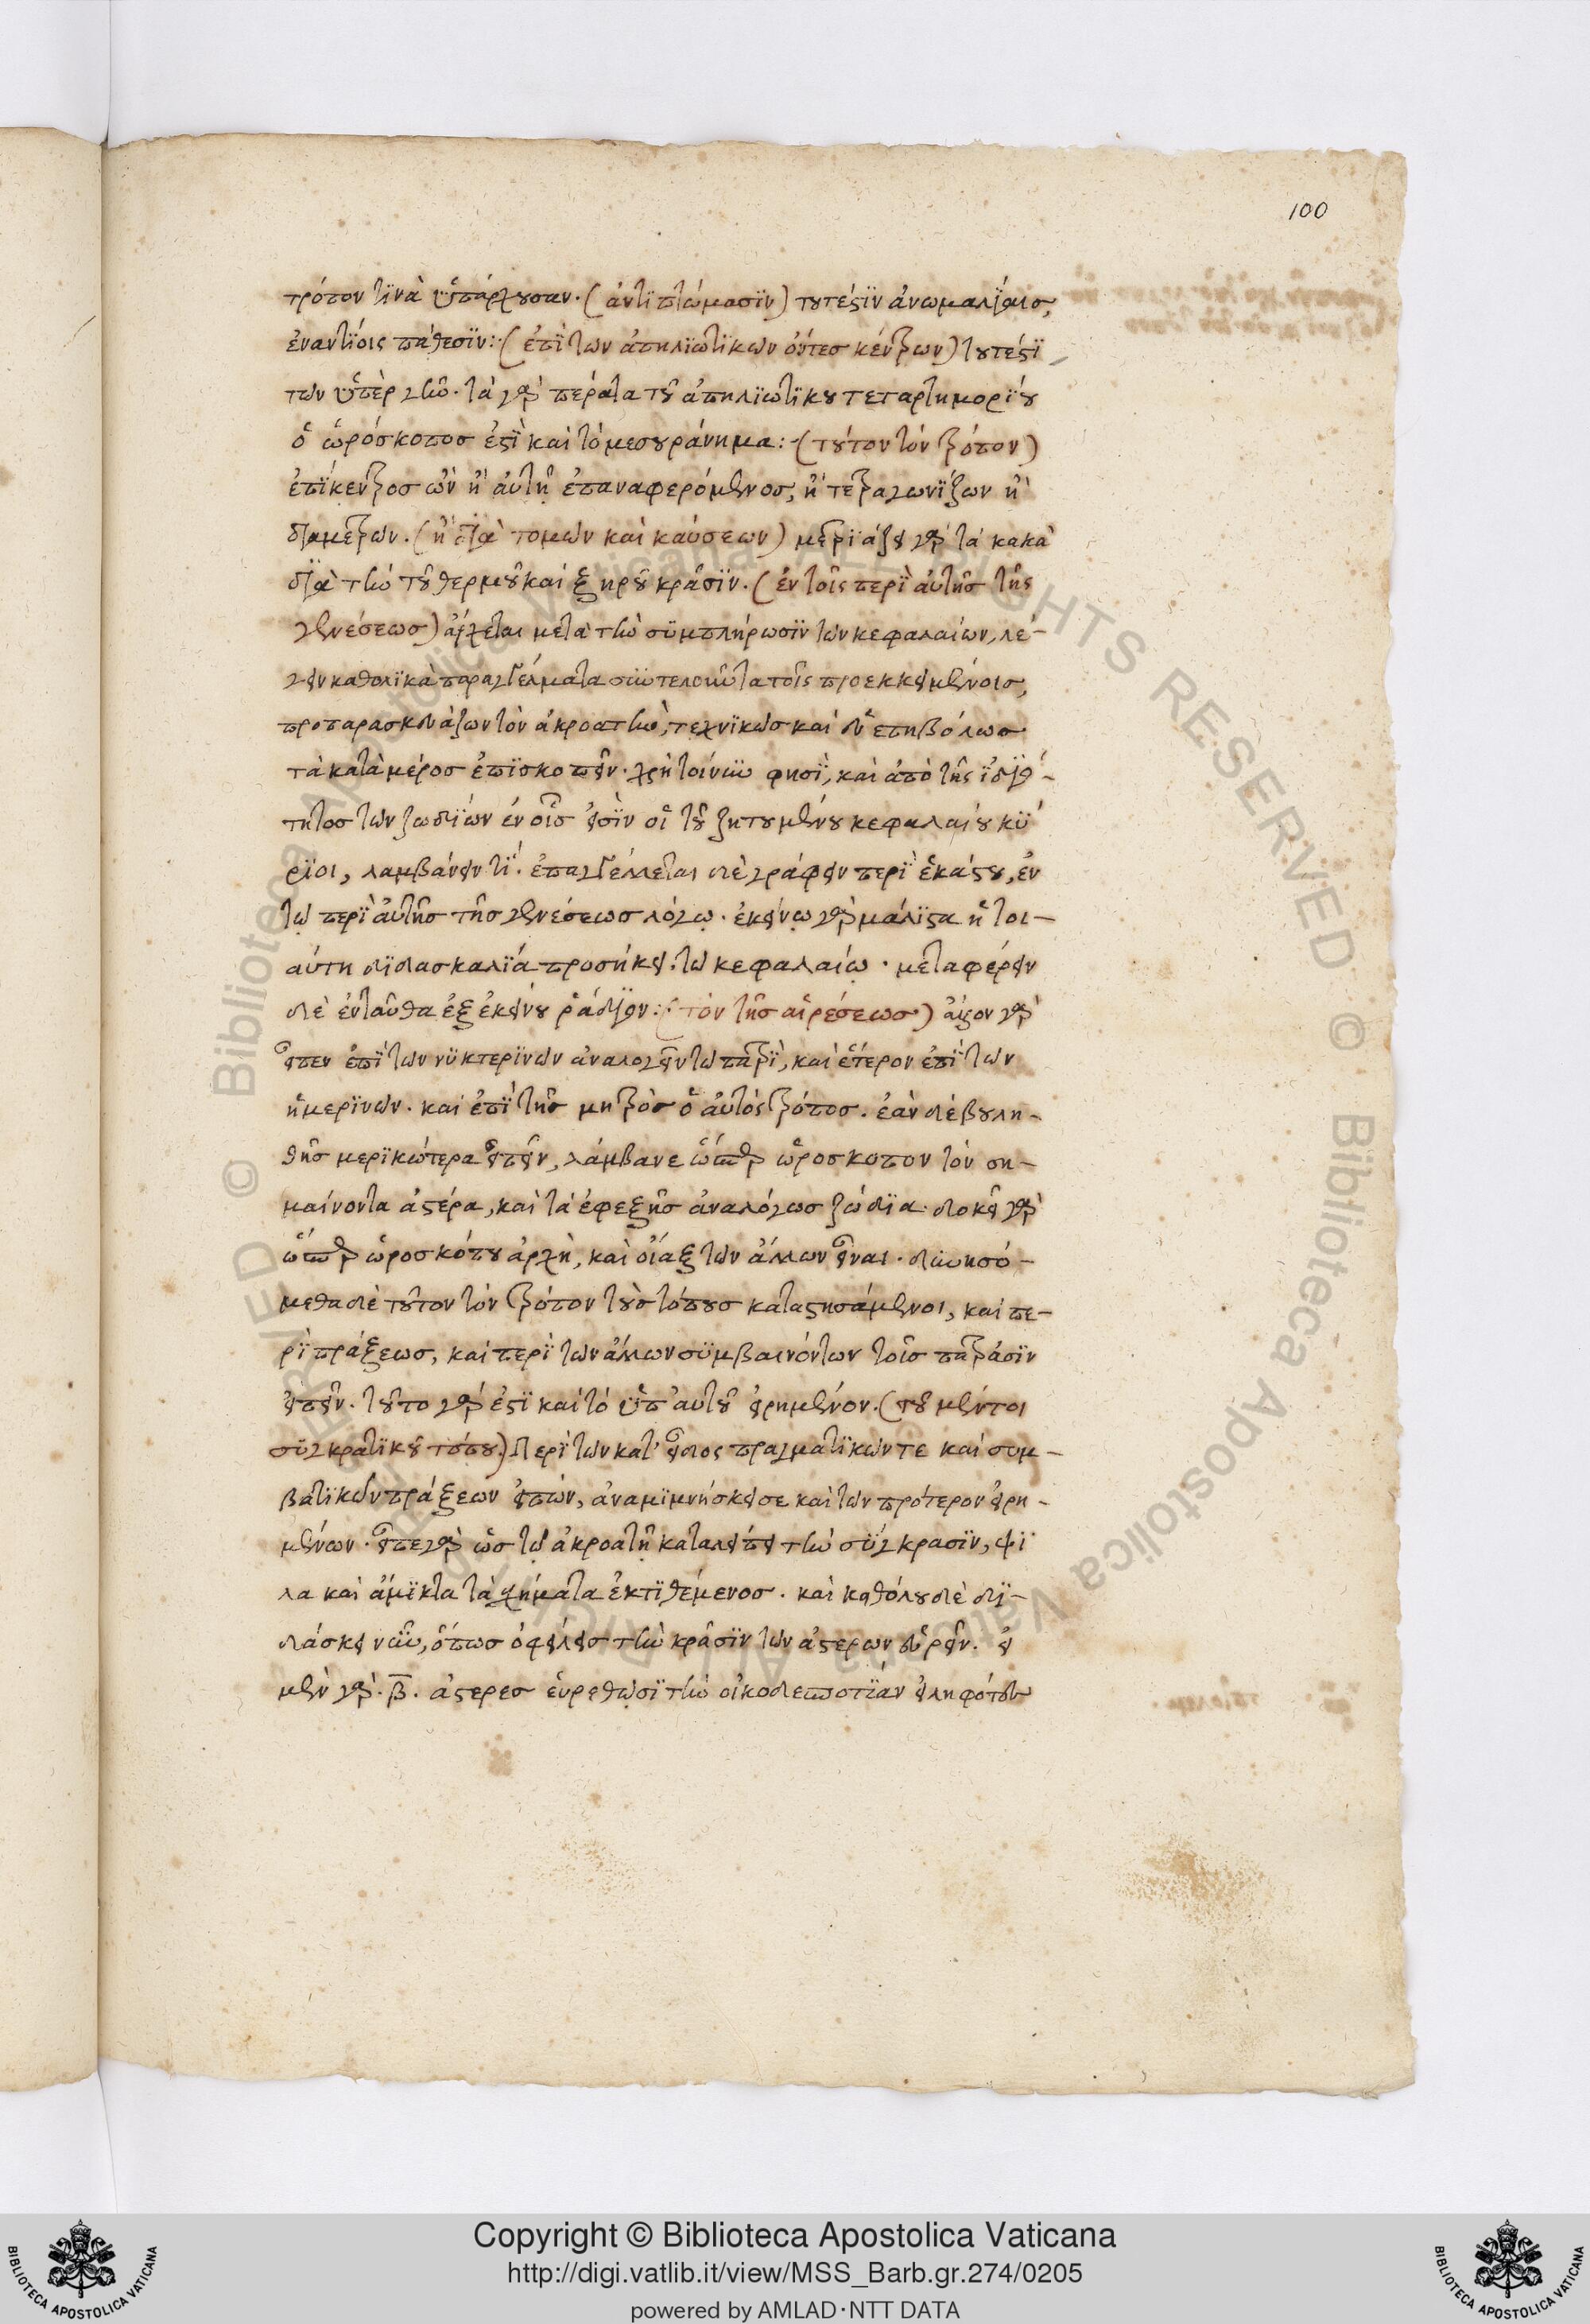 100
τρόπον τινὰ ὑπάρχουσαν. (ἀντιπτώμασιν) τουτέστιν ἀνωμαλίαις,
ἐναντίοις πάθεσιν: (ἐπὶ των ἀπηλιωτικων ὄντες κέντρων) τουτέστι
των ὑπὲρ γῆν. τὰ γὰρ πέρατα τοῦ ἀπηλιωτικου τεταρτημορίου
ὁ ὡρόσκοπος ἐστὶ καὶ τὸ μεσουράνημα: (τοῦτον τὸν τρόπον)
ἐπίκεντρος ὢν ἢ αὐτῆ ἐπαναφερόμενος, ἢ τετραγωνίζων ἢ
διαμετρων. (ἢ διὰ τομων καὶ καύσεων) μετριάζει γὰρ τὰ κακὰ
διὰ τὴν τοῦ θερμοῦ καὶ ξηροῦ κρᾶσιν. (ἐν τοῖς περὶ αὐτῆς τῆς
γενέσεως) ἄρχεται μετὰ τὴν συμπλήρωσιν των κεφαλαίων, λέ-
γειν καθολικὰ παραγγέλματα συντελοῦντα τοῖς προεκκειμένοις,
προπαρασκευάζων τὸν ἀκροατὴν, τεχνικῶς καὶ εὐεπηβόλως
τὰ κατὰ μέρος ἐπισκοπεῖν. χρὴ τοίνυν φησὶ, καὶ ἀπὸ τῆς ἰδιό-
τητος των ζωδίων ἐν οἷς εἰσὶν οἱ τοῦ ζητουμένου κεφαλαίου κύ
ριοι, λαμβάνειν τί. ἐπαγγέλλεται δὲ γράφειν περὶ ἑκάστου, ἐν
τω περὶ αὐτῆς τῆς γενέσεως λόγω. ἐκείνω γὰρ μάλιστα ἡ τοι-
αύτη διδασκαλία προσήκει τω κεφαλαίω. μεταφέρειν
δὲ ἐνταῦθα ἐξ ἐκείνου ῥάδιον: (τὸν τῆς αἱρέσεως) ἄξιον γὰρ
εἶπεν ἐπὶ των νυκτερινων ἀναλογεῖν τω πατρὶ, καὶ ἕτερον ἐπὶ των
ἡμερινων. καὶ ἐπὶ τῆς μητρὸς ὁ αὐτὸς τρόπος. ἐὰν δὲ βουλη-
θῆς μερικώτερα εἰπεῖν, λάμβανε ὥσπερ ὡροσκοπον τὸν ση-
μαίνοντα ἀστέρα, καὶ τὰ ἐφεξῆς ἀναλόγως ζώδια. δοκεῖ γὰρ
ὥσπερ ὡροσκόπου ἀρχὴ, καὶ οἴαξ των ἄλλων εἶναι. δυνησό-
μεθα δὲ τοῦτον τὸν τρόπον τοὺς τόπους καταστησάμενοι, καὶ πε-
ρὶ πράξεως, καὶ περὶ των ἄλλων συμβαινόντων τοῖς πατράσιν
εἰπεῖν. τοῦτο γάρ ἐστι καὶ τὸ ὑπ' αὐτοῦ εἰρημένον. (τοῦ μέντοι
συγκρατικοῦ τόπου.) Περὶ των κατ' εἶδος πραγματικων τε καὶ συμ-
βατικων πράξεων εἰπὼν, ἀναμιμνήσκει σε καὶ των πρότερον εἰρη-
μένων. εἶπε γὰρ ὡς τω ἀκροατῆ καταλείπει τὴν σύγκρασιν, ψι
λα καὶ ἄμικτα τὰ σχήματα ἐκτιθέμενος. καὶ καθόλου δὲ δι-
δάσκει νῦν, ὅπως ὀφείλεις τὴν κρᾶσιν των ἀστερων εὑρεῖν. εἰ
μὲν γὰρ. β. ἀστερες εὑρεθωσι τὴν οἰκοδεσποτίαν εἰληφότες
Copyright © Biblioteca Apostolica Vaticana
http://digi.vatlib.it/view/MSS_Barb.gr.274/0205
powered by AMLAD·NTT DATA